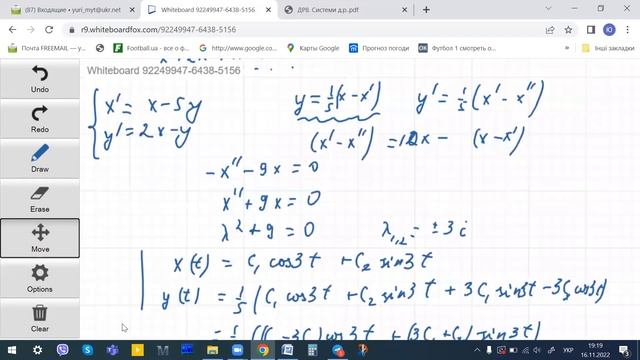 (87) Входящие • yuri_myt@ukr.net
Whiteboard 92249947-6438-5156
ДРВ. Системи д.р..pdf
r9.whiteboardfox.com/92249947-6438-5156
Почта FREEMAIL —
Football.ua - все о ф...
www.google.com
Новости
YouTube
Карты
Прогноз погоди
Футбол 1 смотреть о...
Інші закладки
Whiteboard 92249947-6438-5156
Undo
Redo
Draw
Erase
Move
Options
Clear
x' = x - 5y
y = 1/5 (x - x')
y' = 1/5 (x' - x'')
y' = 2x - y
(x' - x'') = 10x - (x - x')
-x'' - 9x = 0
x'' + 9x = 0
λ² + 9 = 0
λ₁,₂ = ± 3i
x(t) = C₁ cos3t + C₂ sin3t
y(t) = 1/5 (C₁ cos3t + C₂ sin3t + 3C₁ sin3t - 3C₂ cos3t)
УКР
19:19
16.11.2022